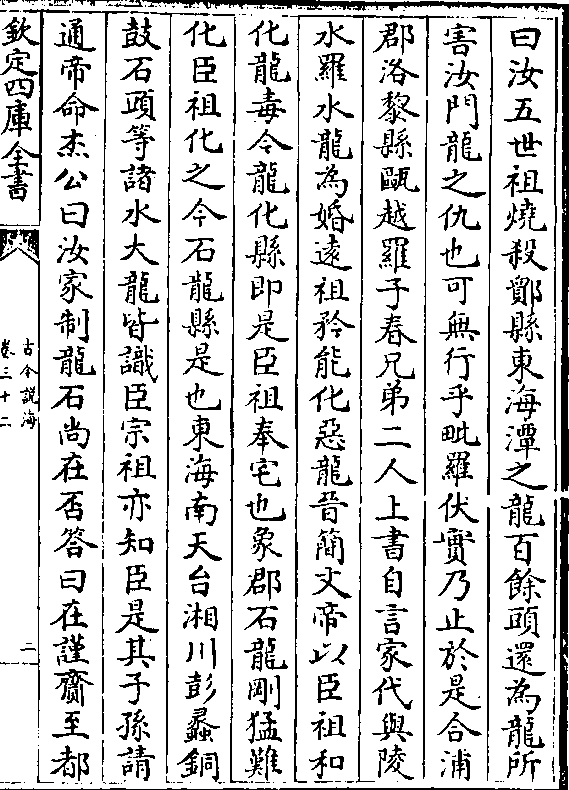 曰汝五世祖燒殺鄮縣東海潭之龍百餘頭還為龍所
害汝門龍之仇也可無行乎毗羅伏實乃止於是合浦
郡洛黎縣甌越羅子春兄弟二人上書自言家代與陵
水羅水龍為婚遠祖矜能化惡龍晋簡文帝以臣祖和
化龍毒今龍化縣即是臣祖奉宅也象郡石龍剛猛難
化臣祖化之今石龍縣是也東海南天台湘川彭蠡銅
鼓石頭等諸水大龍皆識臣宗祖亦知臣是其子孫請
通帝命杰公曰汝家制龍石尚在否答曰在謹齎至都
欽定四庫全書
古今說海
卷三十二
二